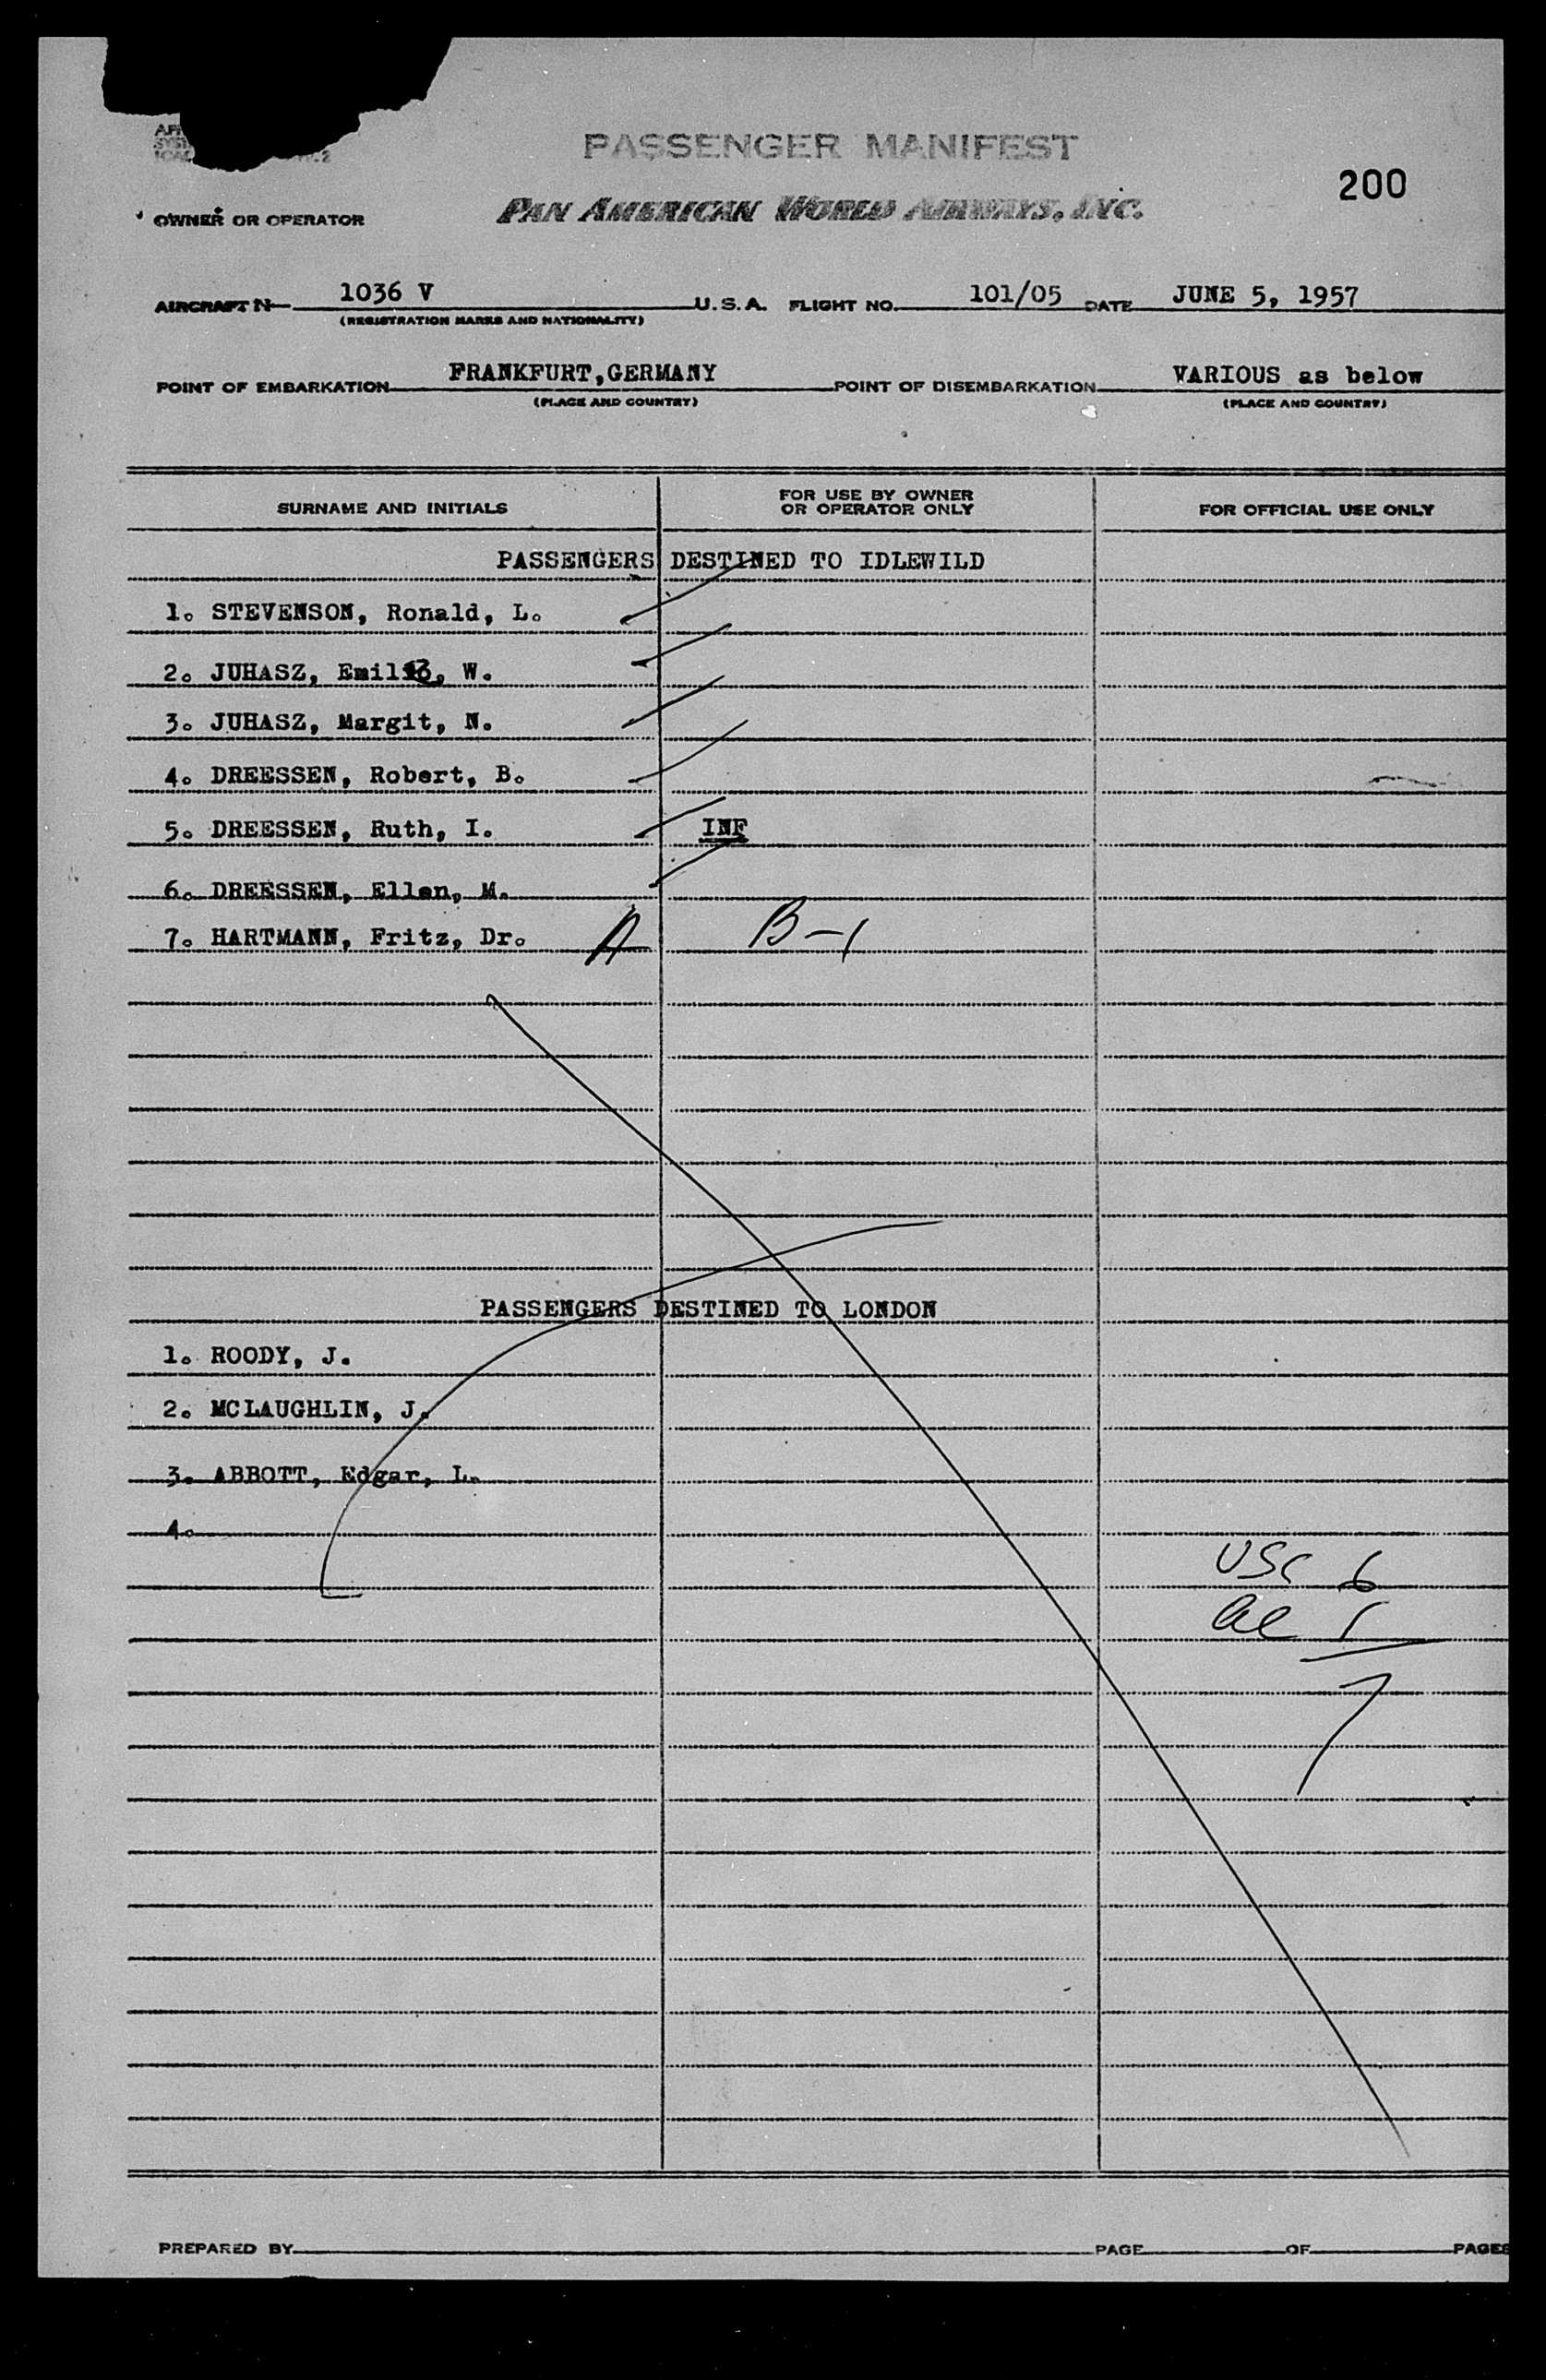 PASSENGER MANIFEST
200
OWNER OR OPERATOR PAN AMERICAN WORLD AIRWAYS, INC.
AIRCRAFT N 1036 V U.S.A. FLIGHT NO. 101/05 DATE JUNE 5, 1957
(REGISTRATION MARKS AND NATIONALITY)
POINT OF EMBARKATION FRANKFURT,GERMANY POINT OF DISEMBARKATION VARIOUS as below
(PLACE AND COUNTRY) (PLACE AND COUNTRY)
SURNAME AND INITIALS FOR USE BY OWNER OR OPERATOR ONLY FOR OFFICIAL USE ONLY
PASSENGERS DESTINED TO IDLEWILD
1. STEVENSON, Ronald, L.
2. JUHASZ, W.
3. JUHASZ, Margit, N.
4. DREESSEN, Robert, B.
5. DREESSEN, Ruth, I. INF
6. DREESSEN, Ellen, M.
7. HARTMANN, Fritz, Dr. A B-1
PASSENGERS DESTINED TO LONDON
1. ROODY, J.
2. MCLAUGHLIN, J.
3. ABBOTT, Edgar, L.
4.
USC 6
al 1
7
PREPARED BY PAGE OF PAGES